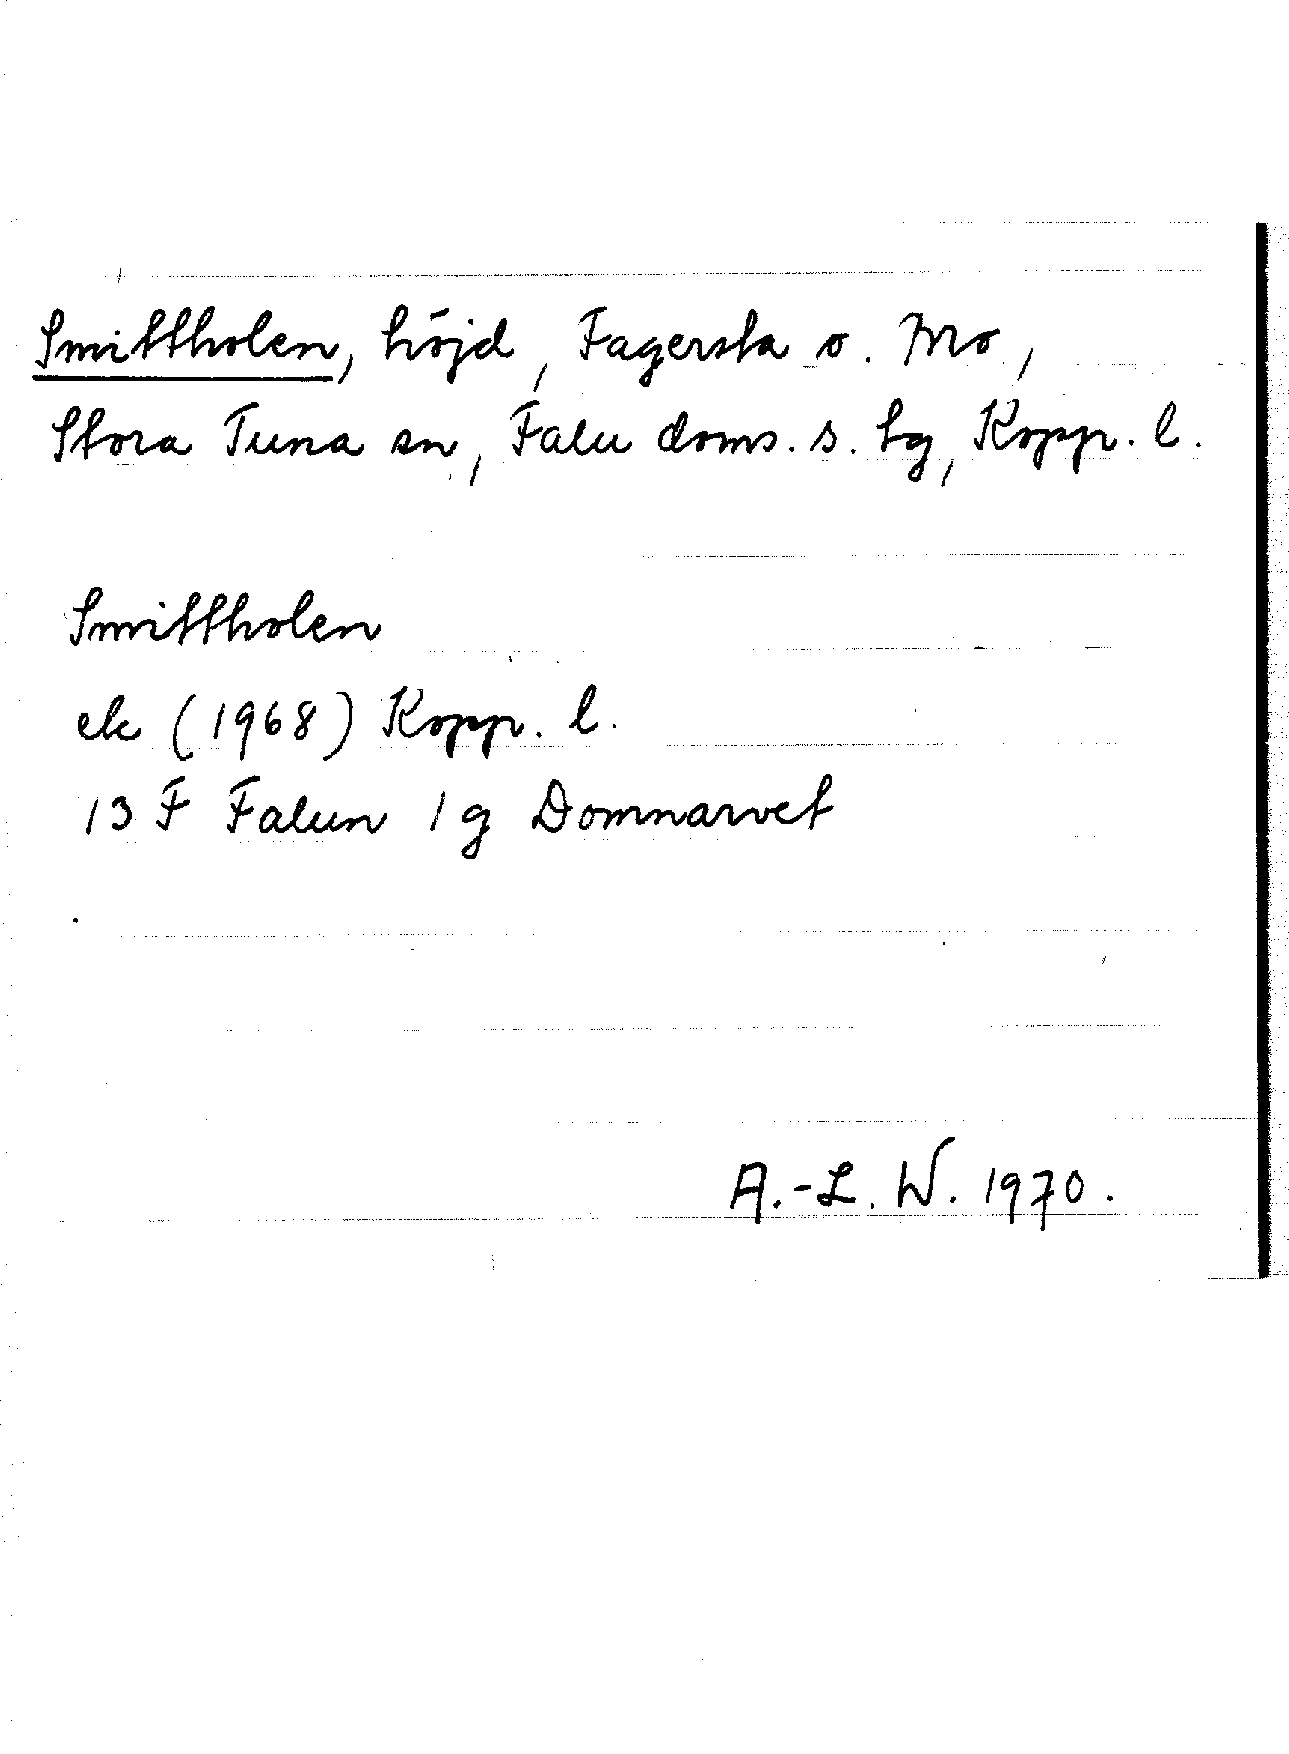 Smittholen, höjd, Fagersta o. Mo,
Stora Tuna sn, Falu doms. s. tg, Kopp. l.
Smittholen
ek (1968) Kopp. l.
13 F Falun 1 g Domnarvet
A.-L. W. 1970.